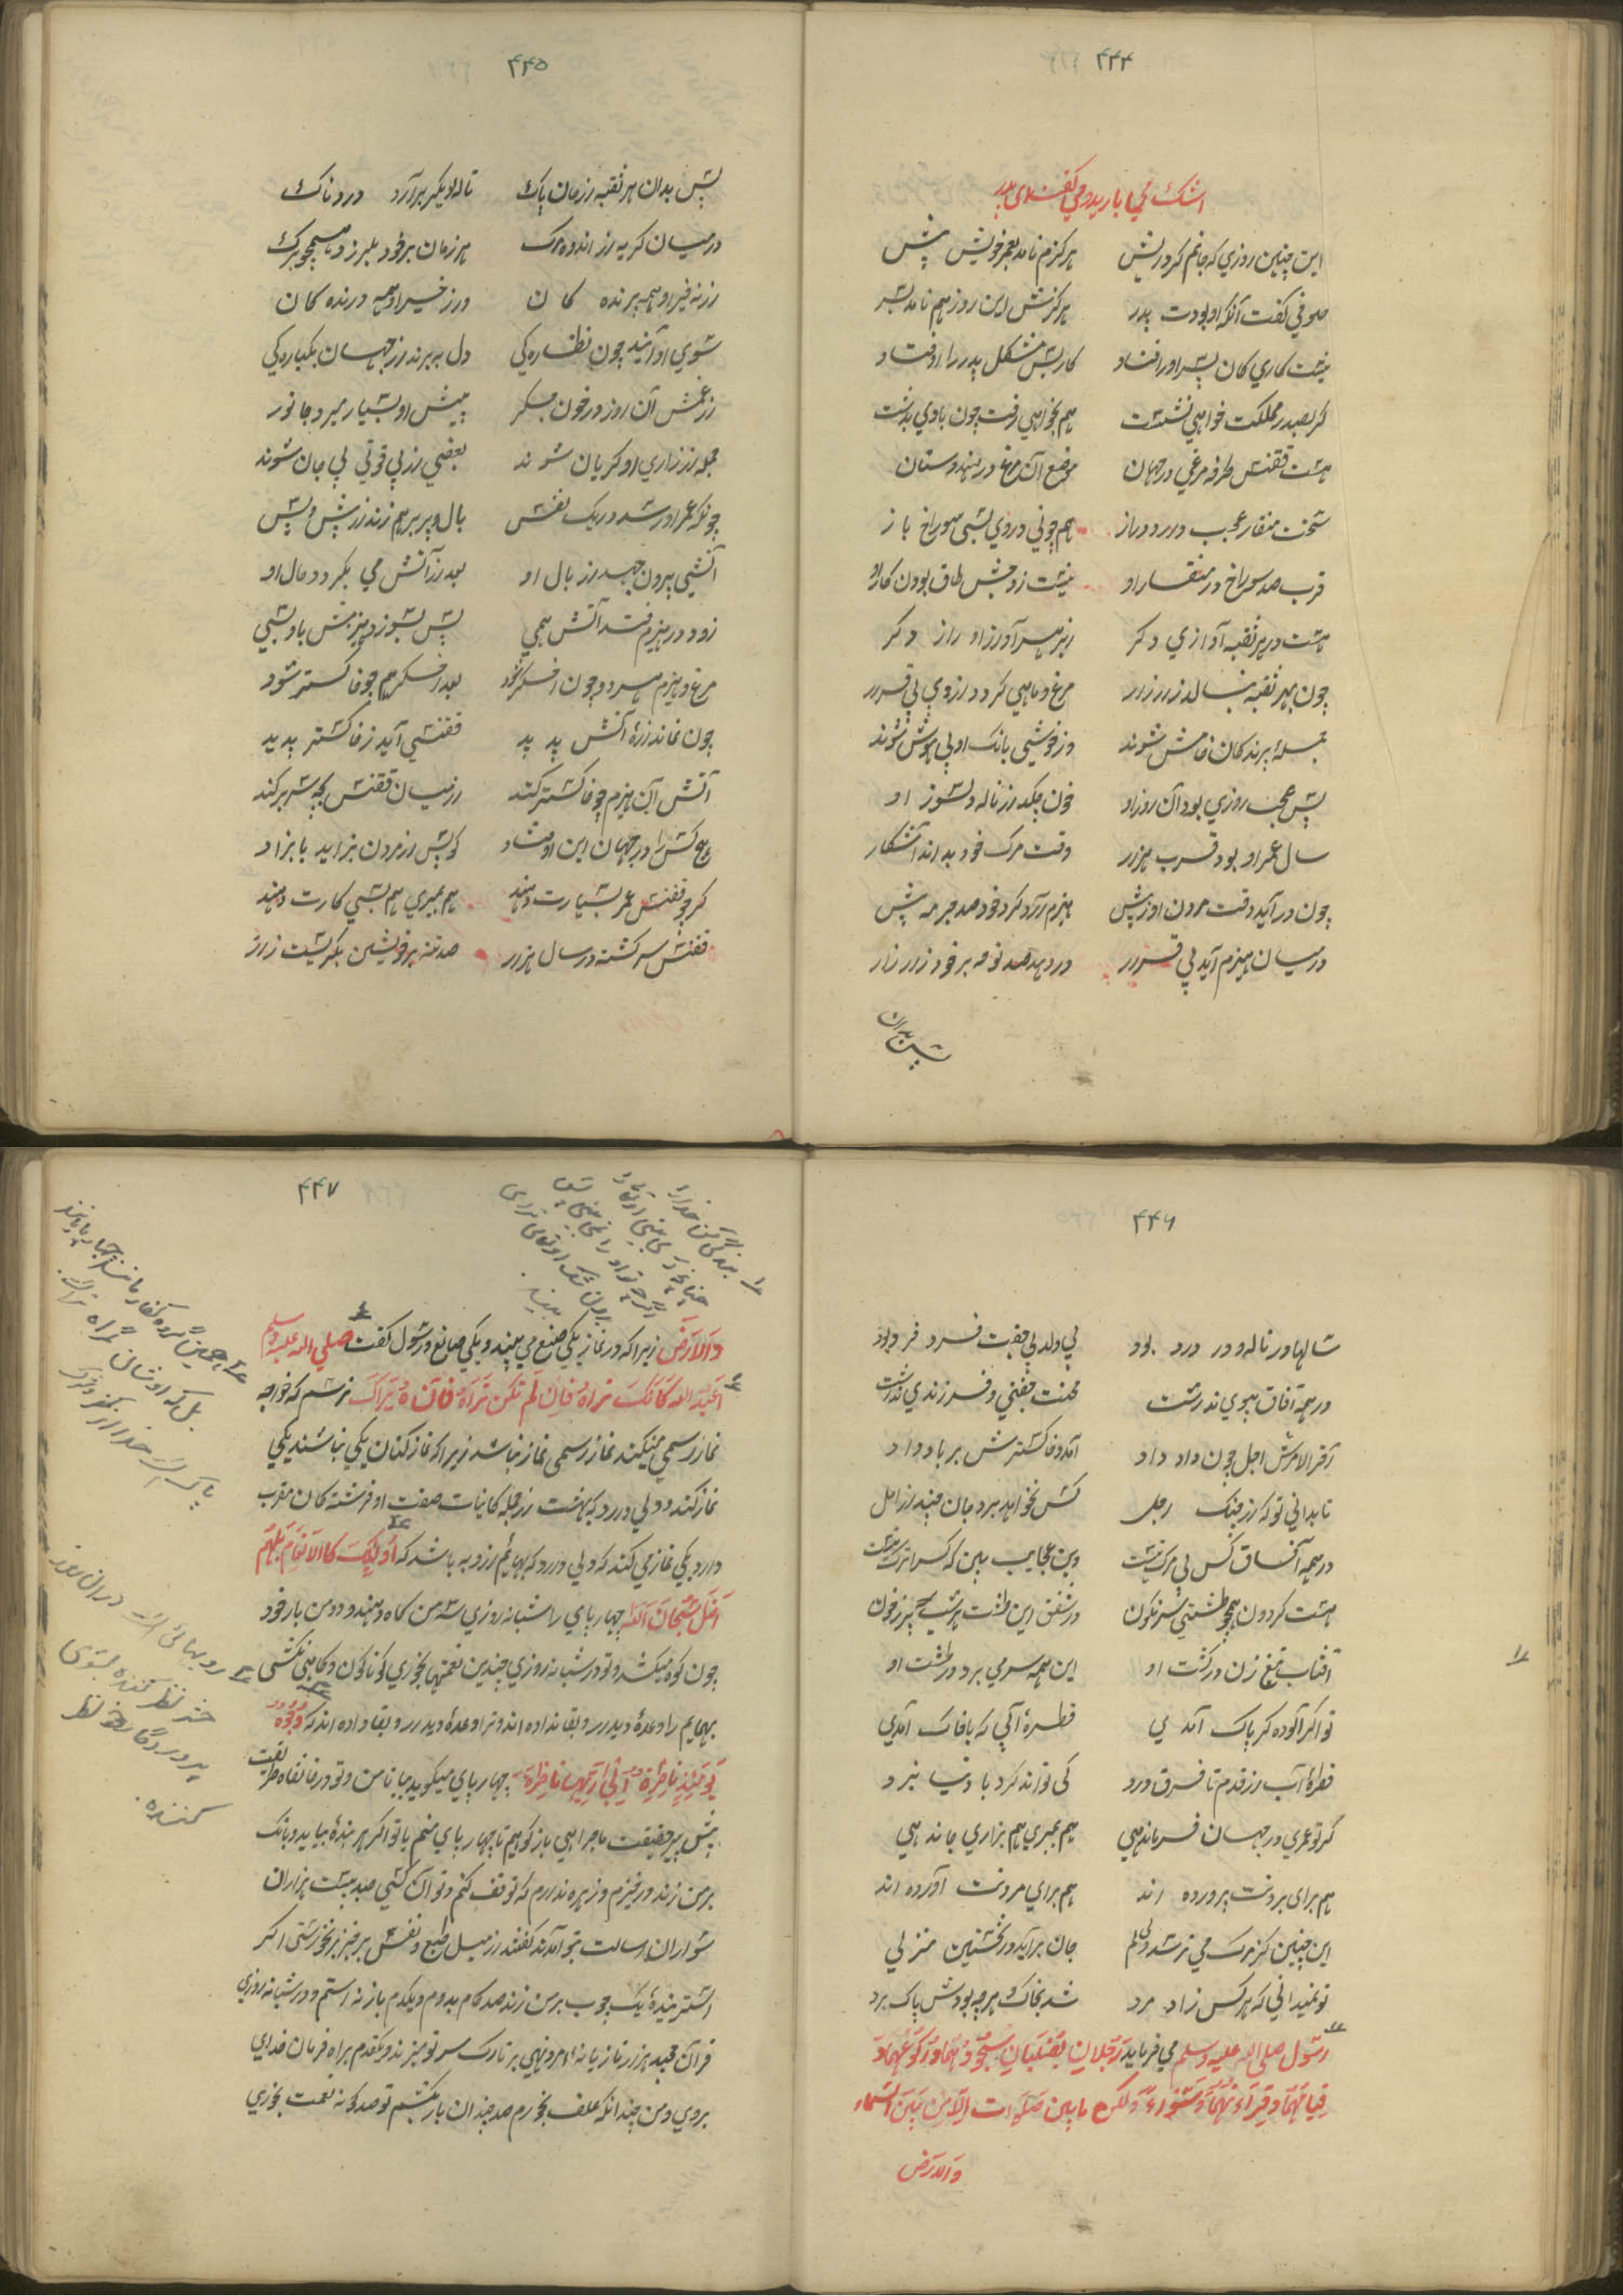 ۴۴۴
اشک می بارید و می گفت ای پدر
این چنین روزی که جانم کرد ریش هرگزم نامد بعمر خویش پیش
صوفی گفت آنکه او بودت پدر هرگزش این روز هم نامد بسر
نیست کاری کان پسر را اوفتاد کار بس مشکل پدر را اوفتاد
گر بصدر مملکت خواهی نشست هم نخواهی رفت جز بادی بدست
هست ققنس طرفه مرغی در جهان موضع آن مرغ در هندوستان
سخت منقار عجب دارد دراز همچو نی در وی بسی سوراخ باز
قرب صد سوراخ در منقار او نیست زوجش طاق بودن کار او
هست در هر ثقبه آوازی دگر زیر هر آواز او راز دگر
چون بهر ثقبه بنالد زار زار مرغ و ماهی گردد از وی بی قرار
جملهٔ پرندگان خامش شوند وز خوشی بانگ او بی هوش شوند
پس عجب روزی بود آن روز او خون چکد از ناله و سوز او
سال عمر او بود قرب هزار وقت مرگ خود بداند آشکار
چون در آید وقت مردن او ز پیش هیزم آرد گرد خود صد حزمه بیش
در میان هیزم آید بی قرار در دهد صد نوحه بر خود زار زار
پس بدان
۴۴۵
پس بدان هر ثقبه از جان پاک نالهٔ دیگر برآرد دردناک
در میان گریه از اندوه مرگ هر زمان بر خود بلرزد همچو برگ
از نفیر او همه پرنده گان وز خیر او همه درنده گان
سوی او آیند چون نظاره گی دل ببرند از جهان یکباره گی
از غمش آن روز در خون جگر پیش او بسیار میرد جانور
جمله از زاری او گریان شوند بعضی از بی قوتی بی جان شوند
چونکه عمر او رسد در یک نفس بال و پر بر هم زند از پیش و پس
آتشی بیرون جهد از بال او بعد از آتش می بگردد حال او
زود در هیزم فتد آتش همی پس بسوزد هیزمش با وی بسی
مرغ و هیزم هر دو چون اخگر شود بعد اخگر هم چو خاکستر شود
چون نماند ذرهٔ آتش پدید ققنسی آید ز خاکستر پدید
آتش آن هیزم چو خاکستر کند از میان ققنس بچه سر بر کند
هیچ کس را در جهان این اوفتاد کو پس از مردن بزاید یا بزاد
گر چو ققنس عمر بسیارت دهند هم بمیری هم بسی کارت دهند
ققنس سرگشته در سال هزار صد تنه بر خویشتن بگریست زار
۴۴۶
سالها در ناله و در درد بود بی ولد بی جفت فرد فرد بود
در همه آفاق پیوی نداشت محنت جفتی و فرزندی نداشت
آخر الامرش اجل چون داد داد آمد و خاکسترش بر باد داد
تا بدانی تو که از چنگ اجل کس نخواهد برد جان چند از امل
در همه آفاق کس بی مرگ نیست وین عجایب بین که کس را برگ نیست
هست گردون همچو طشتی سرنگون در شفق این طشت هر شب پر ز خون
آفتاب تیغ زن در گشت او این همه سر می برد در طشت او
تو اگر آلوده گر پاک آمدی قطرهٔ آبی که با خاک آمدی
قطرهٔ آب از قدم تا فرق درد کی تواند کرد با دریا نبرد
گر تو عمری در جهان فرمان دهی هم بمیری هم بزاری جان دهی
هم برای بردنت پرورده اند هم برای مردنت آورده اند
این چنین کز مرگ می ترسد دلم جان برآید در نخستین منزلی
تو نمیدانی که هر کس زاد مرد شد بخاک و هرچه بودش باد برد
رسول صلی الله علیه وسلم می فرماید رَجُلانِ یُصَلّیانِ سجودهما و رکوعهما و
قیامهما و قراءتهما سواء ولکن ما بین صلوات کالامن بین السماء
والارض
۴۴۷
بندگی کن خدا را
چنانچه که می بینی او را
اگرچه تو او را نمی بینی
بدون شک او تعالی ترا می
بیند
والارض زیرا که در نماز یکی صنع می بیند و یکی صانع رسول گفت صلی الله علیه وسلم
اعبد الله کانک تراه فان لم تکن تراه فانه یراک ترسم که خواجه
نماز رسمی میکند نماز رسمی نماز نباشد زیرا که نماز کنان یکی نباشند یکی
نماز کند و دلی دارد که بهشت از جمله کاینات صفت او فرشته کان مقرب
دارد و یکی نماز می کند که دلی دارد که بهایم از و به باشد که اولئک کالانعام بل هم
اضل سبحان الله چهارپای را شبانه روزی سه من کاه دهند و دو من بار خود
چون کوه میکشد و تو در شبانه روزی چندین نعمتها بخوری گوناگون و کاهی نکشی
بهایم را وعدهٔ دیدار و بقا نداده اند و ترا وعدهٔ دیدار و بقا داده اند که وجوه
یومئذ ناضرة الی ربها ناظرة چهارپای میگوید بیا تا من و تو در خانقاه طریقت
پیش پیر حقیقت ماجراهی باز گوهیم تا چهارپای منم یا تو اگر هر بندهٔ بیاید و بانگ
بر من زند در خیزم و زهره ندارم که توقف کنم و تو آن کسی صد بیست هزاران
سواران رسالت بتو آمدند گفتند از میل طبع و نفس برخیز برنخوزستی اگر
اشتر بندهٔ یک چوب بر من زند صد گام بدوم و یکدم باز نه استم و در شبانه روزی
قرآن مجید هزار تازیانهٔ امر و نهی بر تارک سر تو میزند و یکقدم براه فرمان خدای
نروی و من چندانکه علف بخورم صد چندان بار بکشم تو صد گونه نعمت بخوری
همین گروه کفار مانند چهارپایانند
بل که اوشان گمراه تر اند
پاکی است خدا را
رویهائی است در ان روز
نظر کننده بسوی
پروردگار خود نظر
کننده